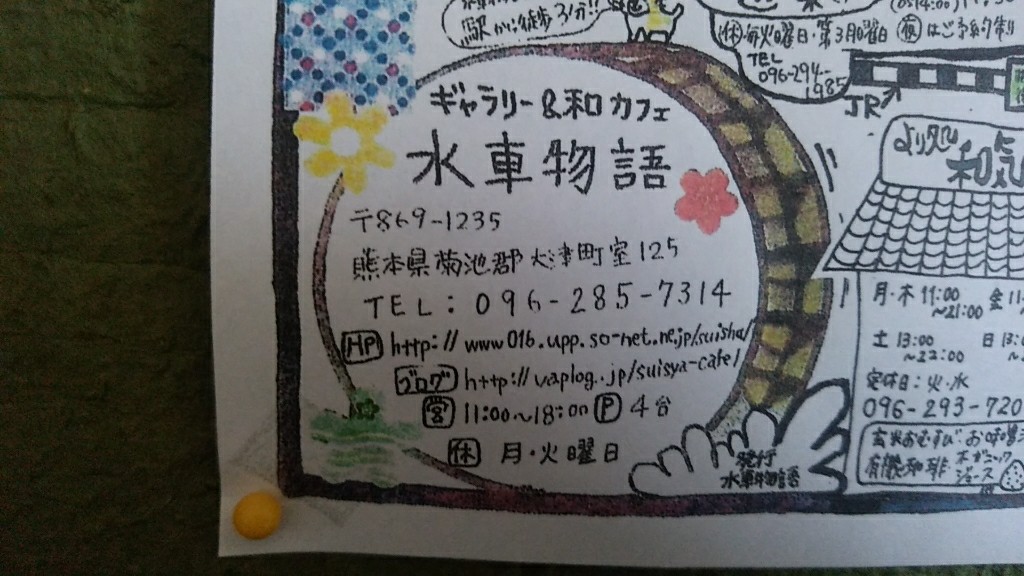 駅から徒歩3分!!
ギャラリー&和カフェ
水車物語
〒869-1235
熊本県菊池郡大津町室125
TEL:096-285-7314
HP http://www016.upp.so-net.ne.jp/suisha/
ブログ http://yaplog.jp/suisya-cafe/
営 11:00~18:00 P 4台
休 月・火曜日
発行
水車物語
休 毎火曜日・第3月曜日 夜はご予約制
TEL
096-294-
1985
JR
より処
和気
月・木 11:00 金 11
~21:00
土 13:00 日 13:
~22:00
定休日:火・水
096-293-720
玄米おむすび お味噌
有機珈琲 オーガニック
ジュース